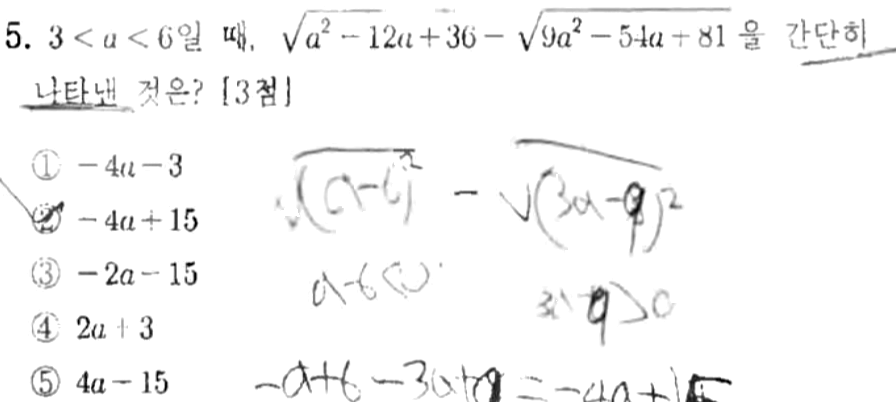 5. 3 < a < 6일 때, √(a² − 12a + 36) − √(9a² − 54a + 81) 을 간단히
나타낸 것은? [3점]
① −4a − 3
② −4a + 15
③ −2a − 15
④ 2a + 3
⑤ 4a − 15
√(a-6)² − √(3a-9)²
a-6<0
3a-9>0
-a+6-3a+9=-4a+15